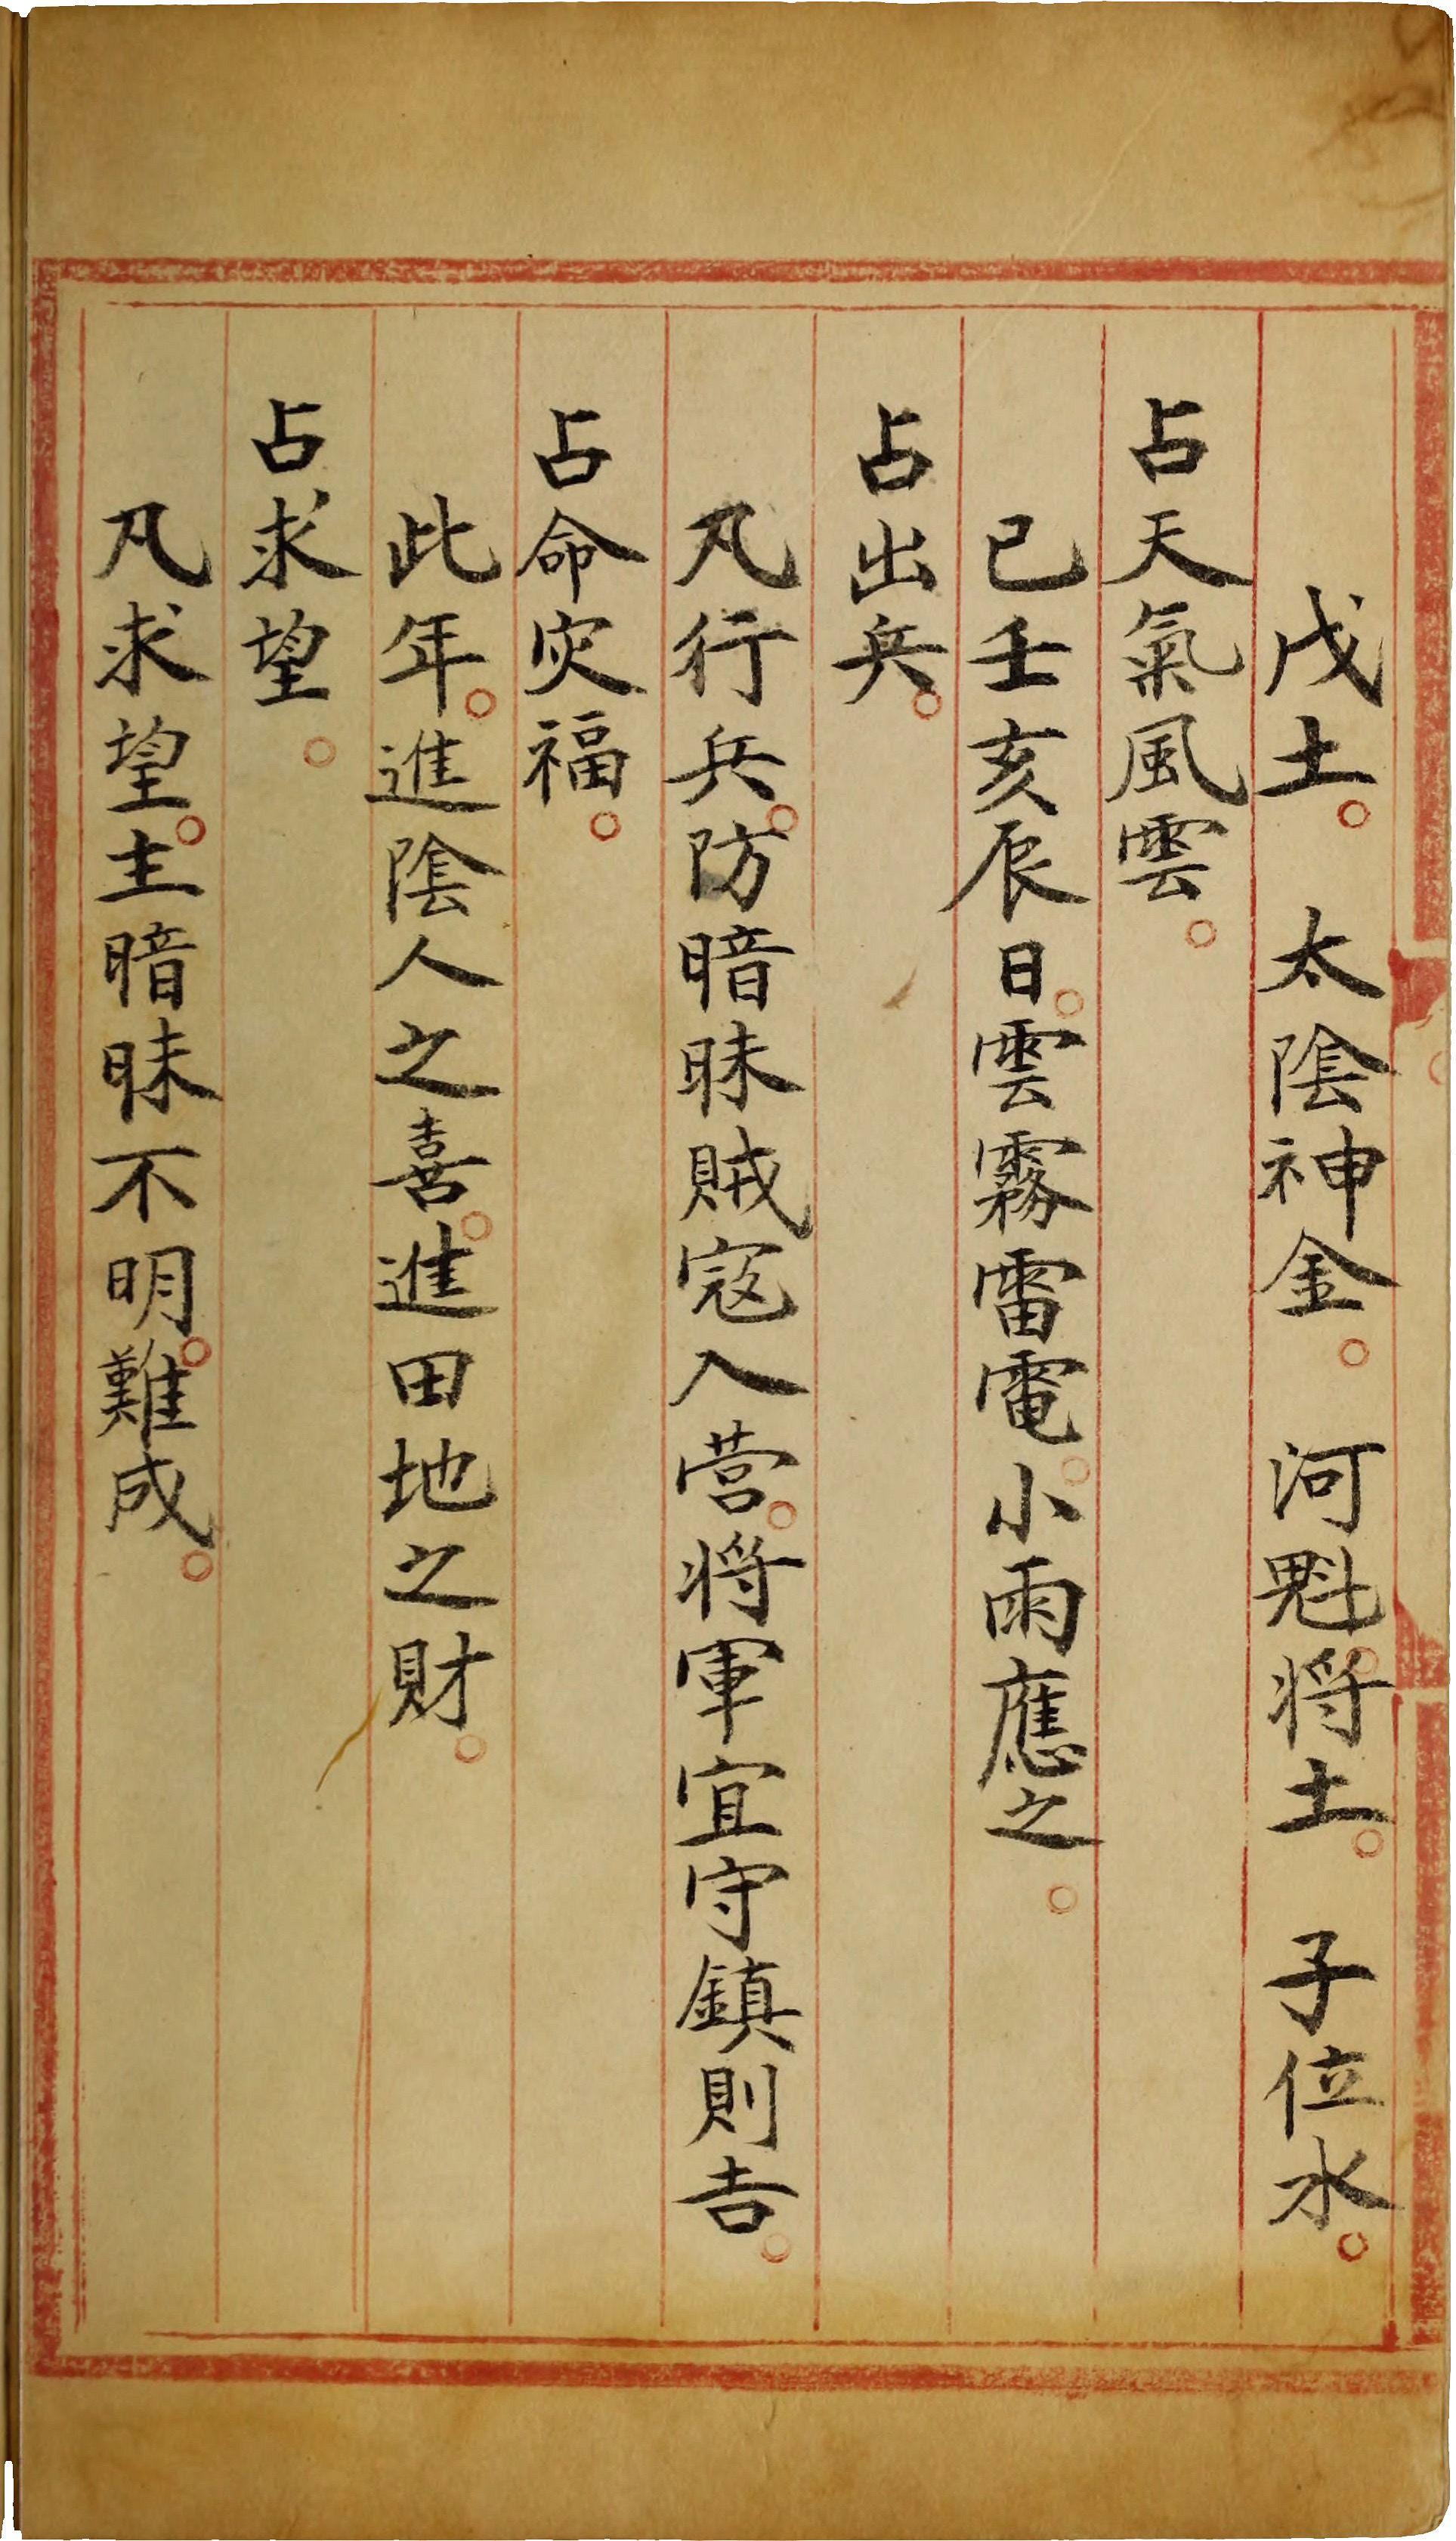 戊土。太陰神金。河魁將土。子位水。
占天氣風雲。
己壬亥辰日。雲霧雷電。小雨應之。
占出兵。
凡行兵。防暗昧賊寇入营。將軍宜守鎮則吉。
占命灾福。
此年。進陰人之喜。進田地之財。
占求望。
凡求望。主暗昧不明。難成。